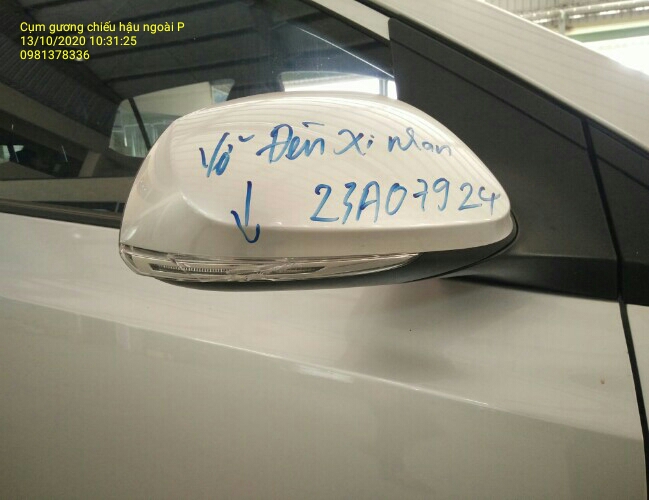 Cụm gương chiếu hậu ngoài P
13/10/2020 10:31:25
0981378336
Vỡ Đèn xi nhan
23A07924